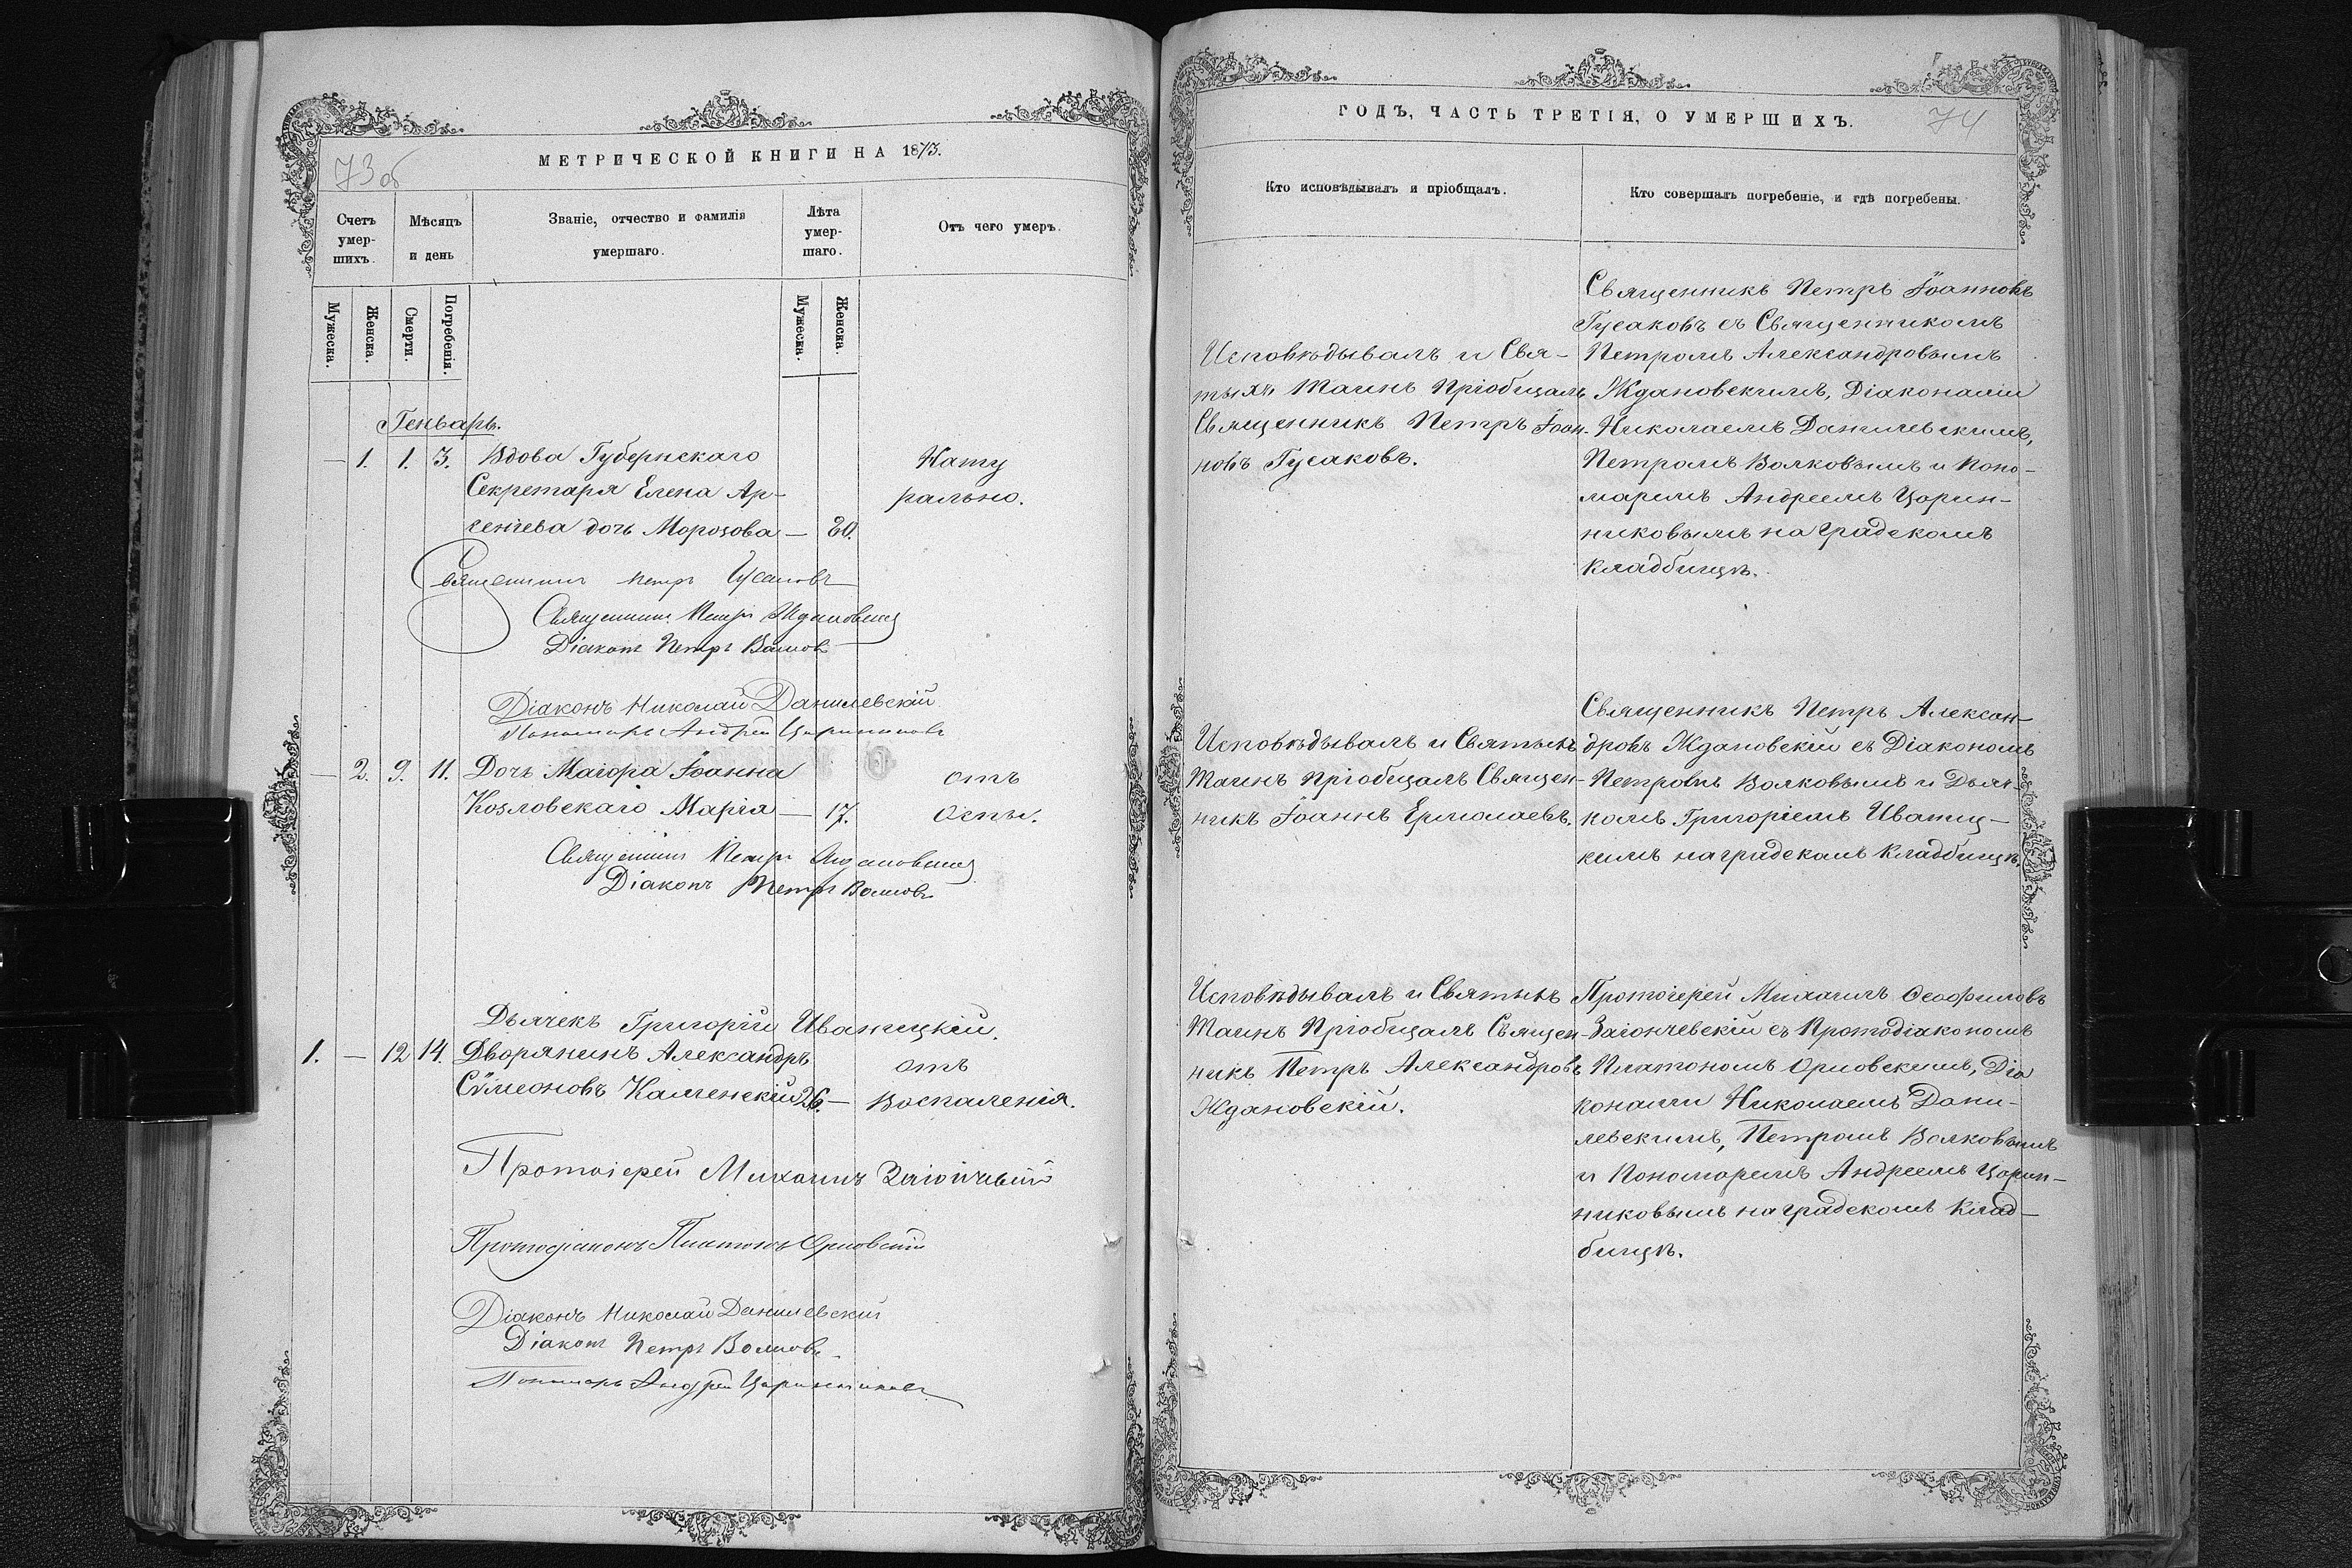 73 об
МЕТРИЧЕСКОЙ КНИГИ НА 1873.
Счетъ умер-
шихъ.
Мѣсяцъ
и день
Званіе, отчество и фамилія
умершаго.
Лѣта
умер-
шаго.
Отъ чего умеръ.
Мужеска.
Женска.
Смерти.
Погребенія.
Мужеска.
Женска.
Генварь.
— 1. 1. 3. Вдова Губернскаго Нату
Секретаря Елена Ар- рально.
сеніева дочь Морозова — 80.
Священникъ Петръ Гусаковъ
Священникъ Петръ Ждановскій
Діаконъ Петръ Волковъ
Діаконъ Николай Данилевскій
Пономарь Андрей Царинниковъ
— 2. 9. 11. Дочь Маіора Іоанна отъ
Козловскаго Марія — 17. Оспы.
Священникъ Петръ Ждановскій
Діаконъ Петръ Волковъ
Дьячекъ Григорій Иваницкій.
1. — 12 14. Дворянинъ Александръ отъ
Сѵмеоновъ Каменскій 26. — Воспаленія.
Протоіерей Михаилъ
Протодіаконъ Платонъ Орловскій
Діаконъ Николай Данилевскій
Діаконъ Петръ Волковъ
Пономарь Андрей Царинниковъ
ГОДЪ, ЧАСТЬ ТРЕТІЯ, О УМЕРШИХЪ.
74
Кто исповѣдывалъ и пріобщалъ.
Кто совершалъ погребеніе, и гдѣ погребены.
Исповѣдывалъ и Свя-
тыхъ Таинъ Пріобщалъ
Священникъ Петръ Іоан-
новъ Гусаковъ.
Священникъ Петръ Іоанновъ
Гусаковъ съ Священникомъ
Петромъ Александровымъ
Ждановскимъ, Діаконами
Николаемъ Данилевскимъ,
Петромъ Волковымъ и Поно-
маремъ Андреемъ Царин-
никовымъ на градскомъ
Кладбищѣ.
Исповѣдывалъ и Святыхъ
Таинъ Пріобщалъ Священ-
никъ Іоаннъ Ермолаевъ.
Священникъ Петръ Алексан-
дровъ Ждановскій съ Діакономъ
Петромъ Волковымъ и Дьяч-
комъ Григоріемъ Иваниц-
кимъ на градскомъ Кладбищѣ.
Исповѣдывалъ и Святыхъ
Таинъ Пріобщалъ Священ-
никъ Петръ Александровъ
Ждановскій.
Протоіерей Михаилъ Ѳеофиловъ
Загончевскій съ Протодіакономъ
Платономъ Орловскимъ, Діа
конами Николаемъ Дани-
левскимъ, Петромъ Волковымъ
и Пономаремъ Андреемъ Царин-
никовымъ на градскомъ Клад-
бищѣ.